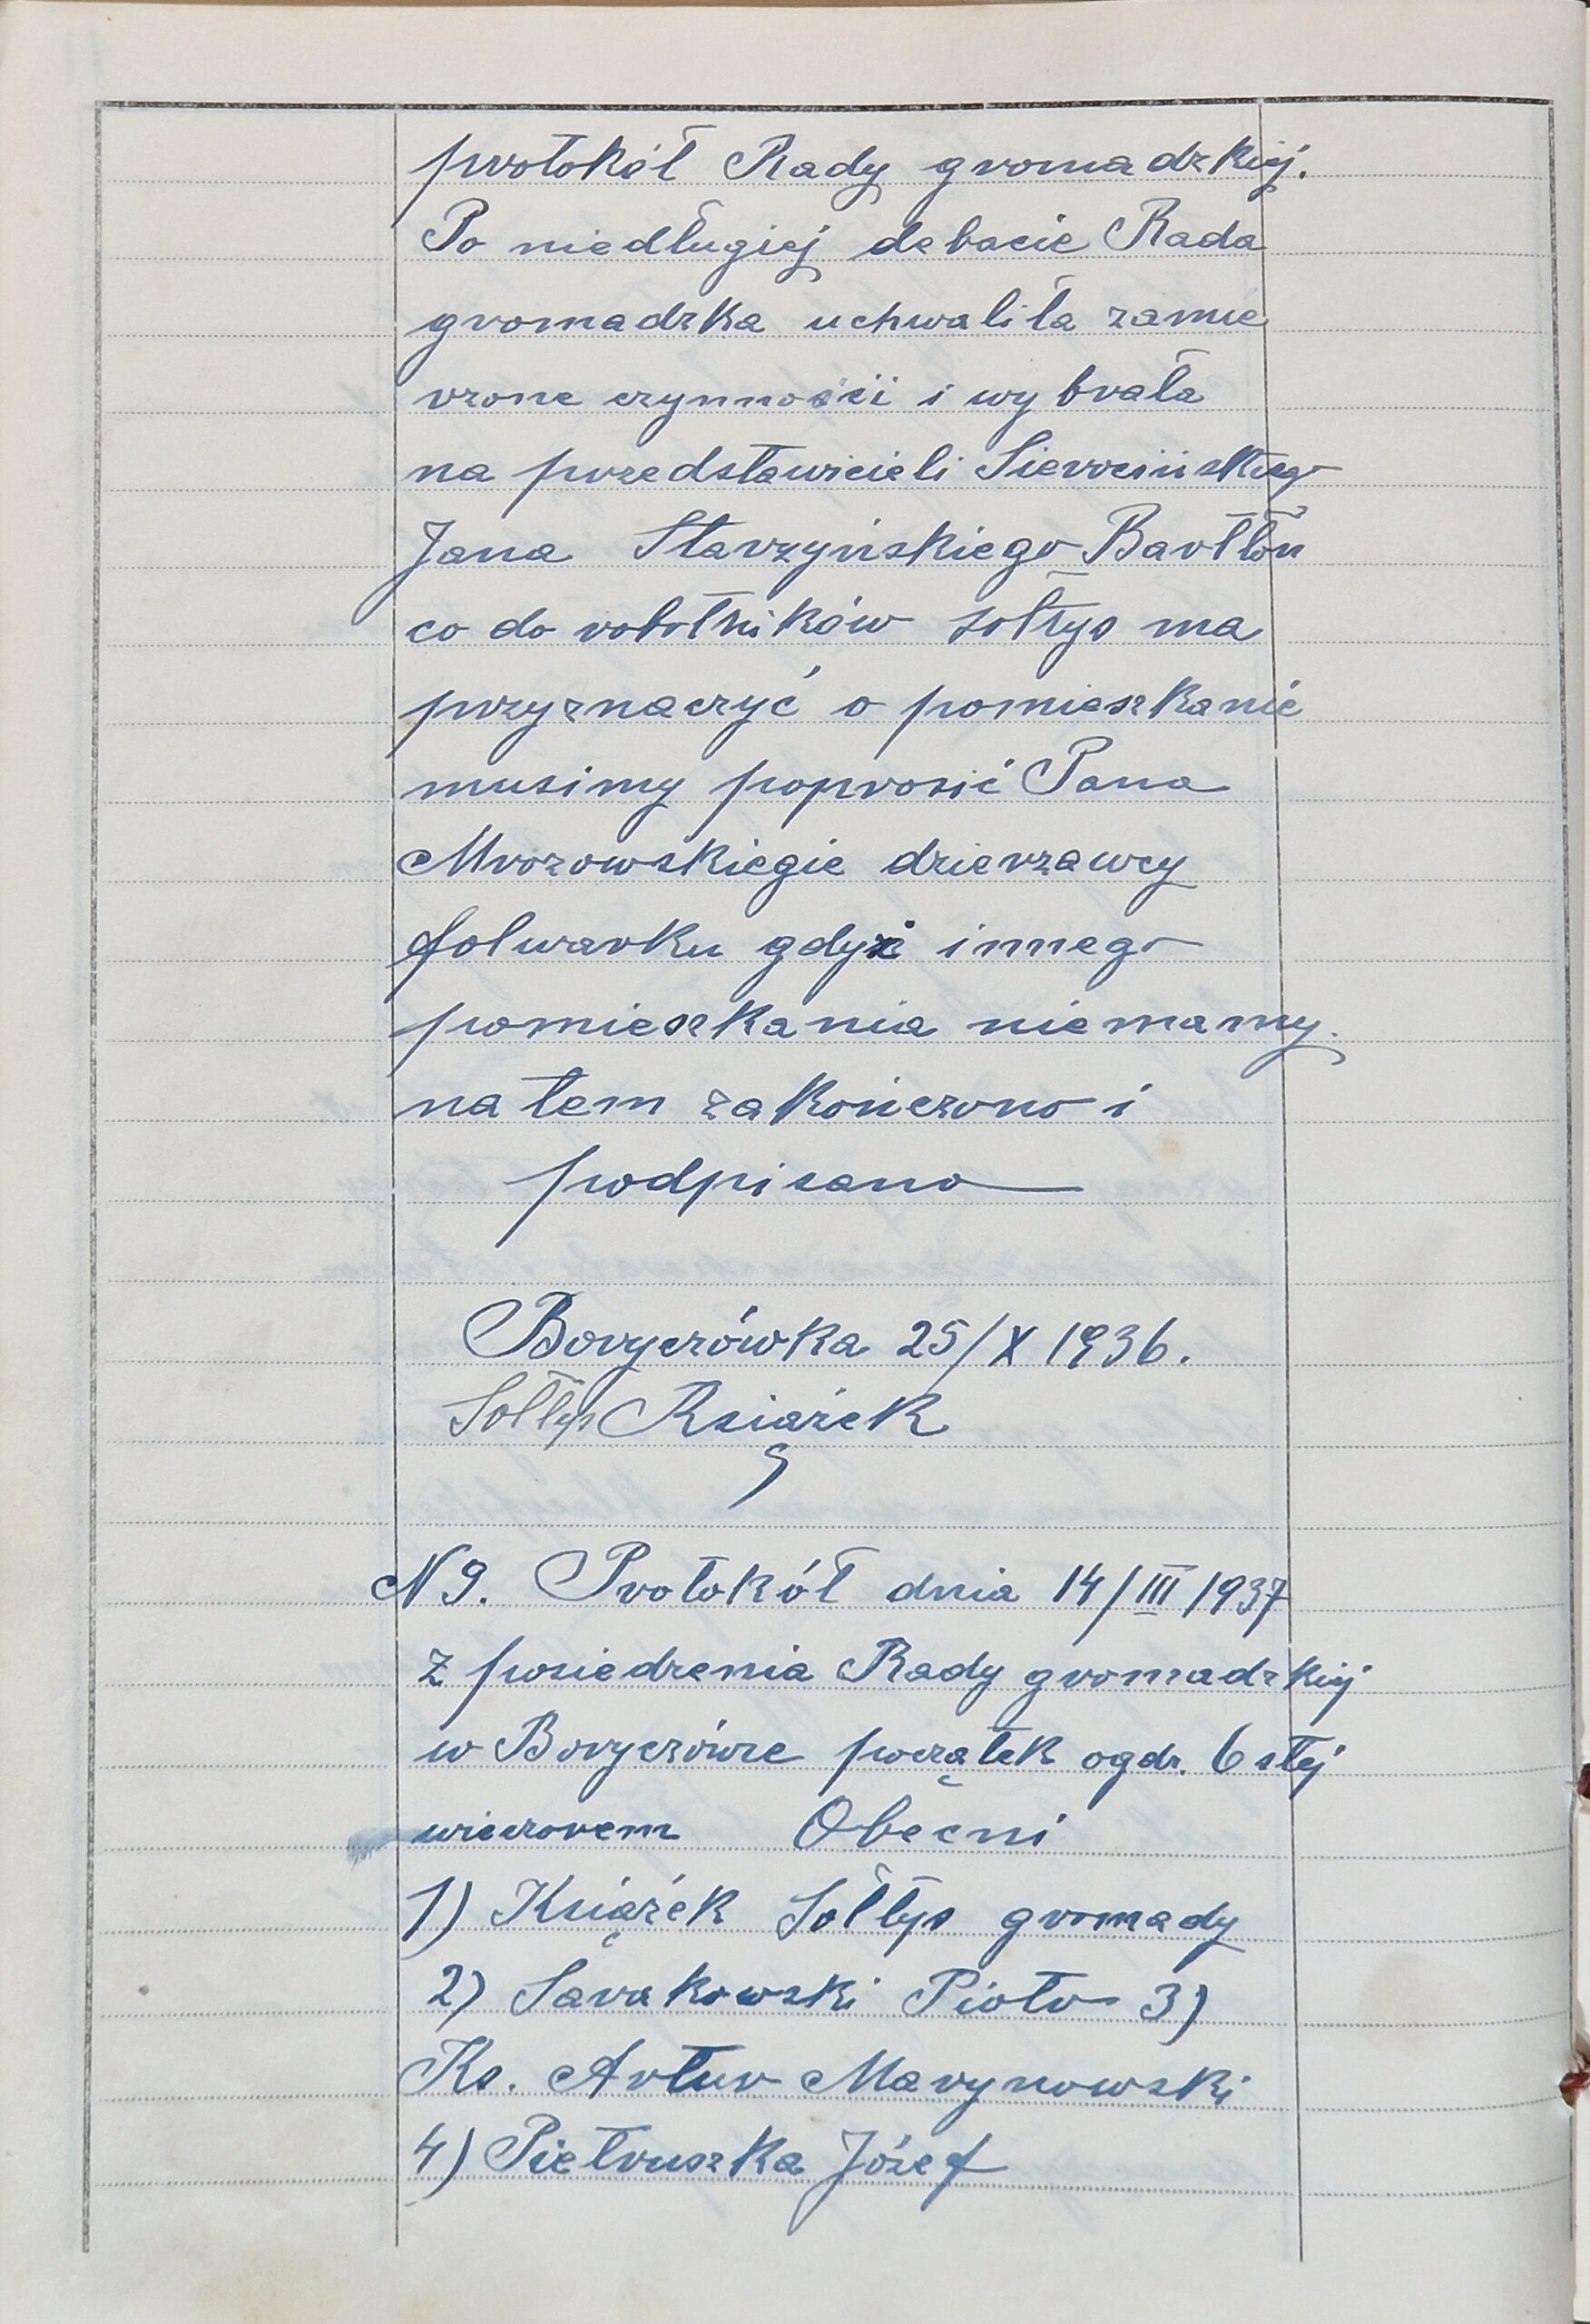 protokół Rady gromadzkiej.
Po niedługiej debacie Rada
gromadzka uchwaliła zamie
rzone czynności i wybrała
na przedstawicieli
Jana Starzyńskiego
co do robotników sołtys ma
przyznaczyć o pomieszkanie
musimy poprosić Pana
Mrozowskiegie dzierzawcy
folwarku gdyż innego
pomieszkania niemamy.
na tem zakończono i
podpisano
Boryczówka 25/X 1936.
Sołtys Książek
N 9. Protokół dnia 14/III 1937
z posiedzenia Rady gromadzkiej
w Boryczówce początek ogdz. 6 stej
wieczorem Obecni
1) Książek Sołtys gromady
2) Sarakowski Piotr 3)
Ks. Artur Marynowski
4) Pietruszka Józef